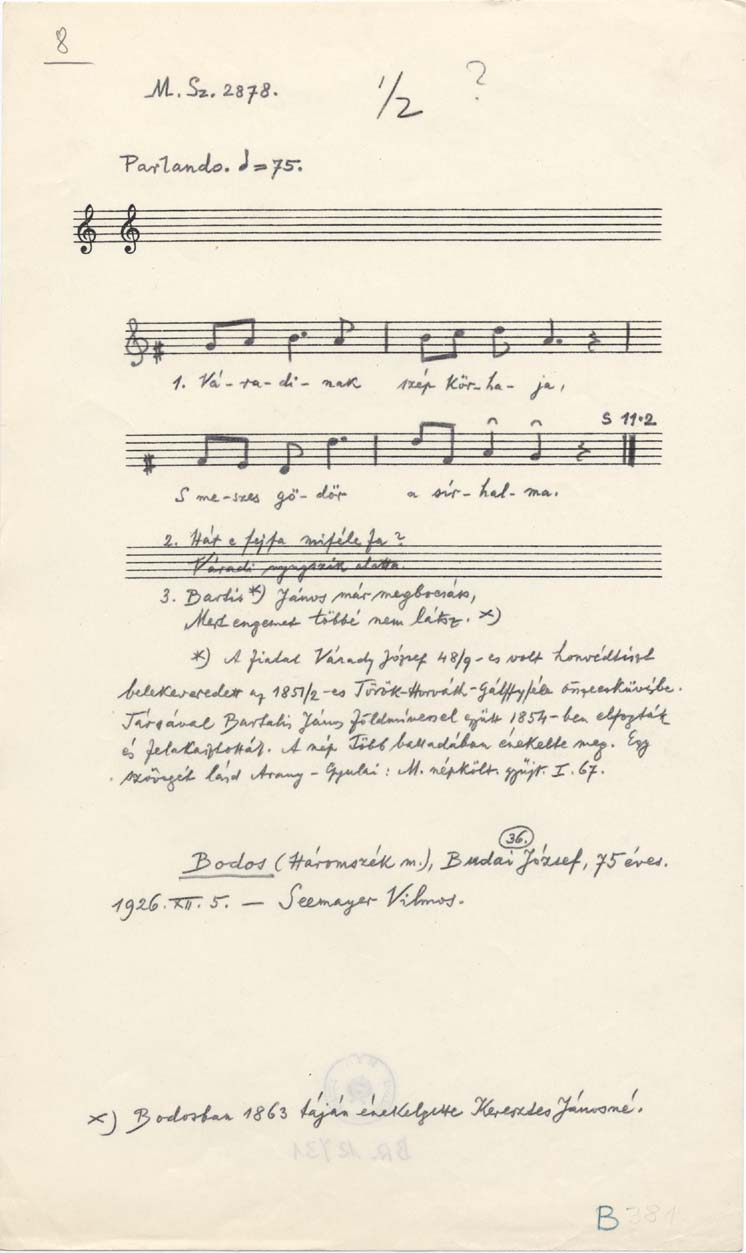 8
M. Sz. 2878.
1/2 ?
Parlando. = 75.
1. Vá-ra-di-nak szép kór-ha-ja,
S 11·2
S me-szes gö-dör a sír-hal-ma.
2. Hát e fejfa miféle fa?
Váradi nyugszik alatta.
3. Bartis *) János már megbocsáss,
Mert engemet többé nem látsz. ×)
*) A fiatal Várady József 48/9-es volt honvédtiszt
belekeveredett az 1851/2-es Török-Horváth-Gálffyféle összeesküvésbe.
Társával Bartalis János földmívessel együtt 1854-ben elfogták
és felakasztották. A nép több balladában énekelte meg. Egy
szövegét lásd Arany-Gyulai: M. népkölt. gyüjt. I. 67.
36.
Bodos (Háromszék m.), Budai József, 75 éves.
1926. XII. 5. — Seemayer Vilmos.
×) Bodosban 1863 táján énekelgette Keresztes Jánosné.
BR. 12731
B 381